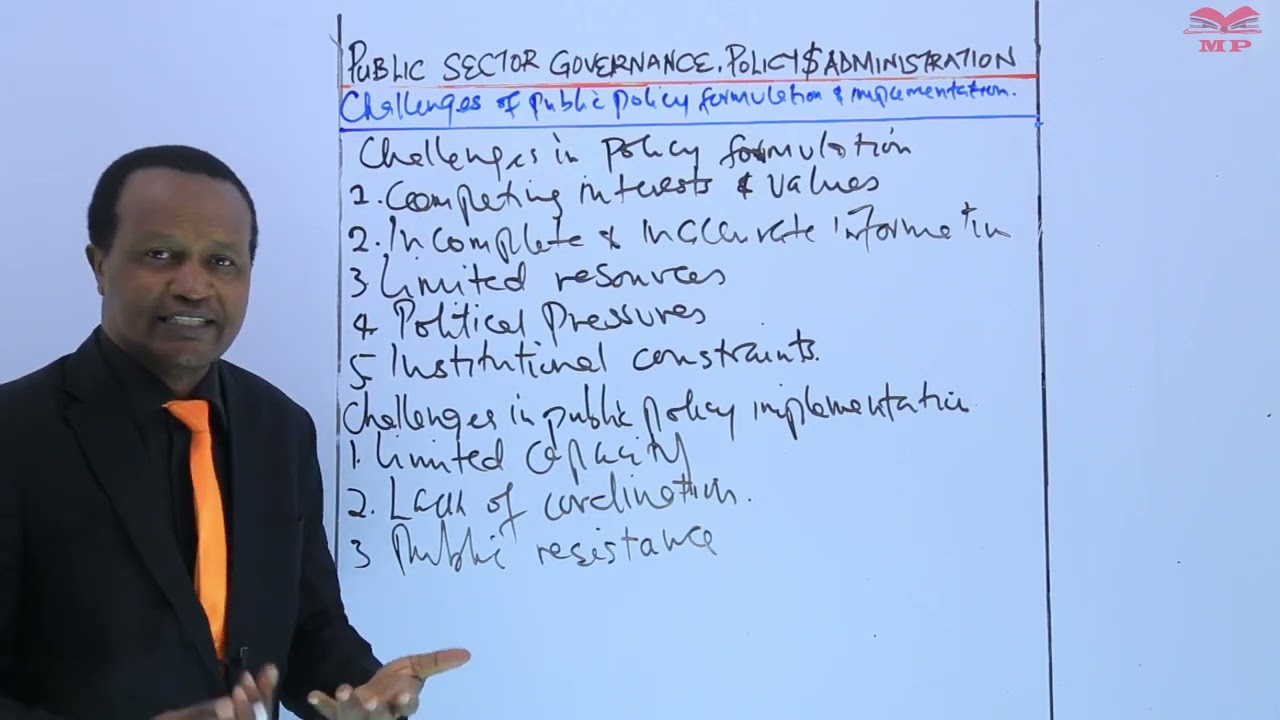 MP
PUBLIC SECTOR GOVERNANCE. POLICY $ ADMINISTRATION
Challenges of public policy formulation & implementation.
Challenges in policy formulation
1. Competing interests & values
2. Incomplete & inaccurate information
3 Limited resources
4. Political Pressures
5 Institutional constraints.
Challenges in public policy implementation
1. Limited Capacity
2. Lack of cordination.
3 Public resistance